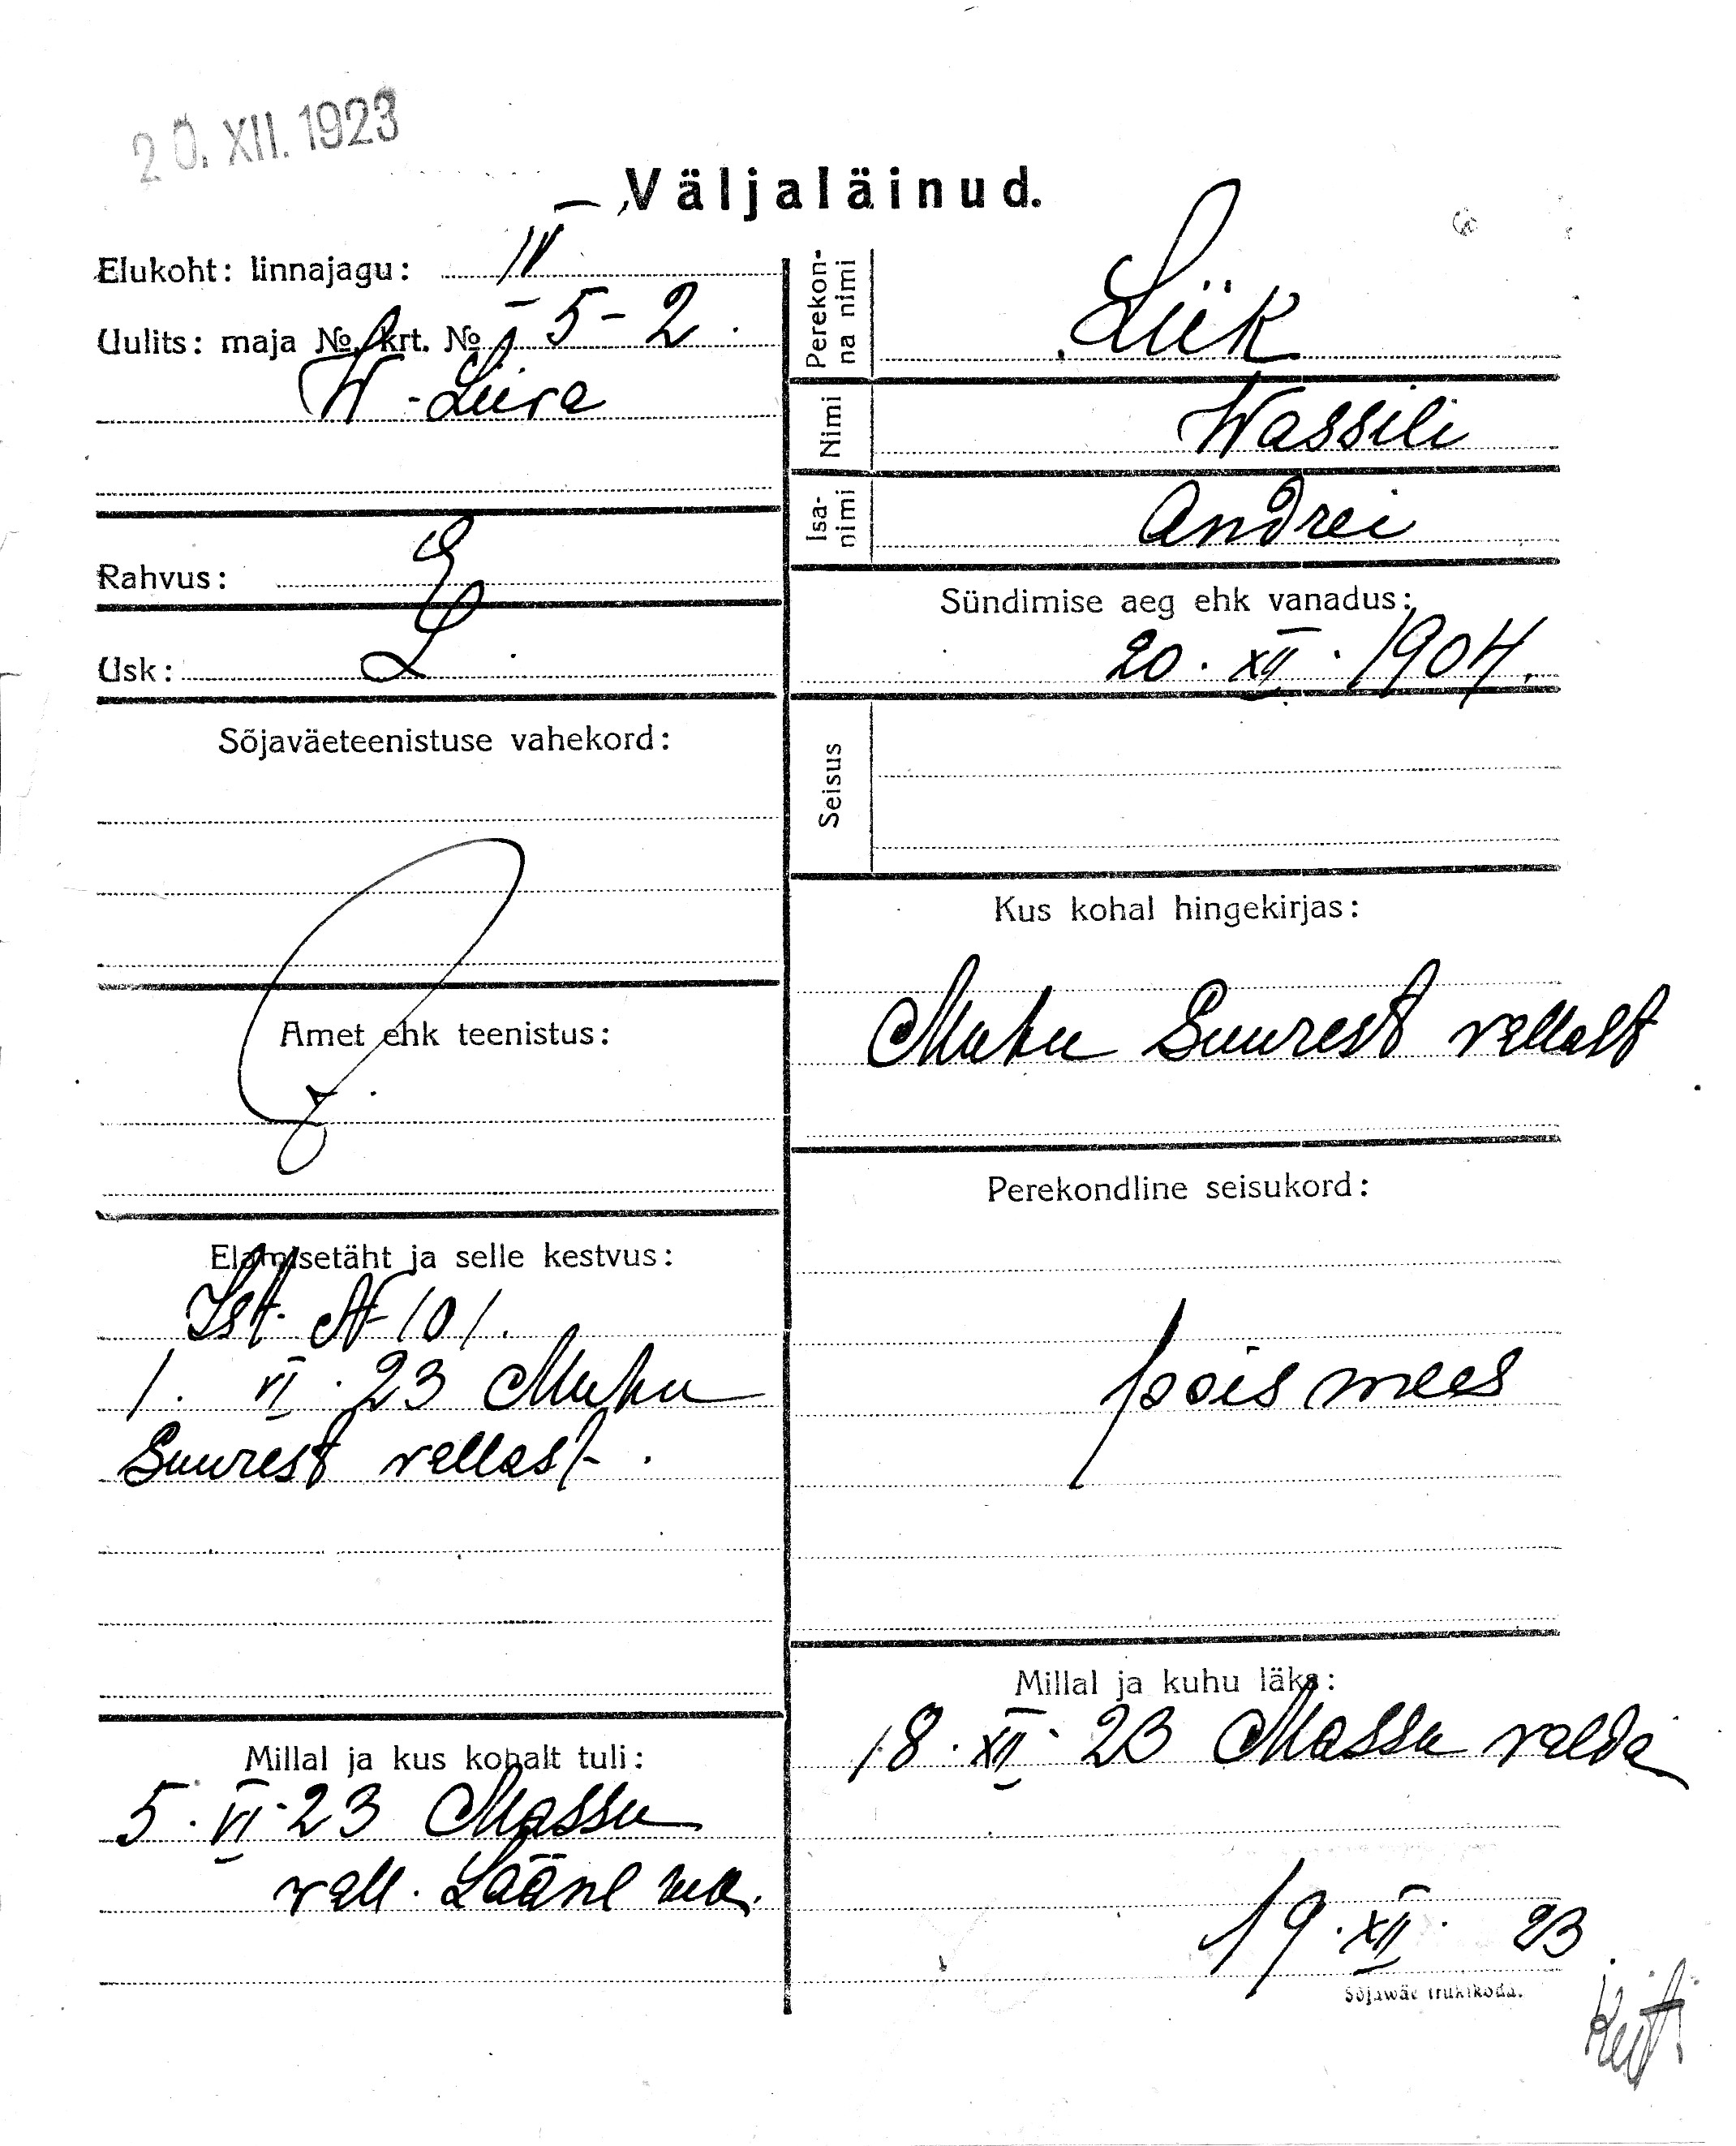 20. XII. 1923
Väljaläinud.
Elukoht: linnajagu: IV
Uulits: maja № krt. № 5-2.
W-Liiva
Rahvus: E
Usk: L.
Sõjaväeteenistuse vahekord:
Amet ehk teenistus:
Elamisetäht ja selle kestvus:
Ist. № 101.
1. VI. 23 Muhu
Suurest vallast.
Millal ja kus kohalt tuli:
5. VI. 23 Massu
vall. Lääne ma.
Perekon-
na nimi
Liik
Nimi Wassili
Isa-
nimi
Andrei
Sündimise aeg ehk vanadus:
20. XII. 1904.
Seisus
Kus kohal hingekirjas:
Muhu Suurest vallast
Perekondline seisukord:
poismees
Millal ja kuhu läks:
18. XII. 23 Massu valda
19. XII. 23
Sõjawäe trükikoda.